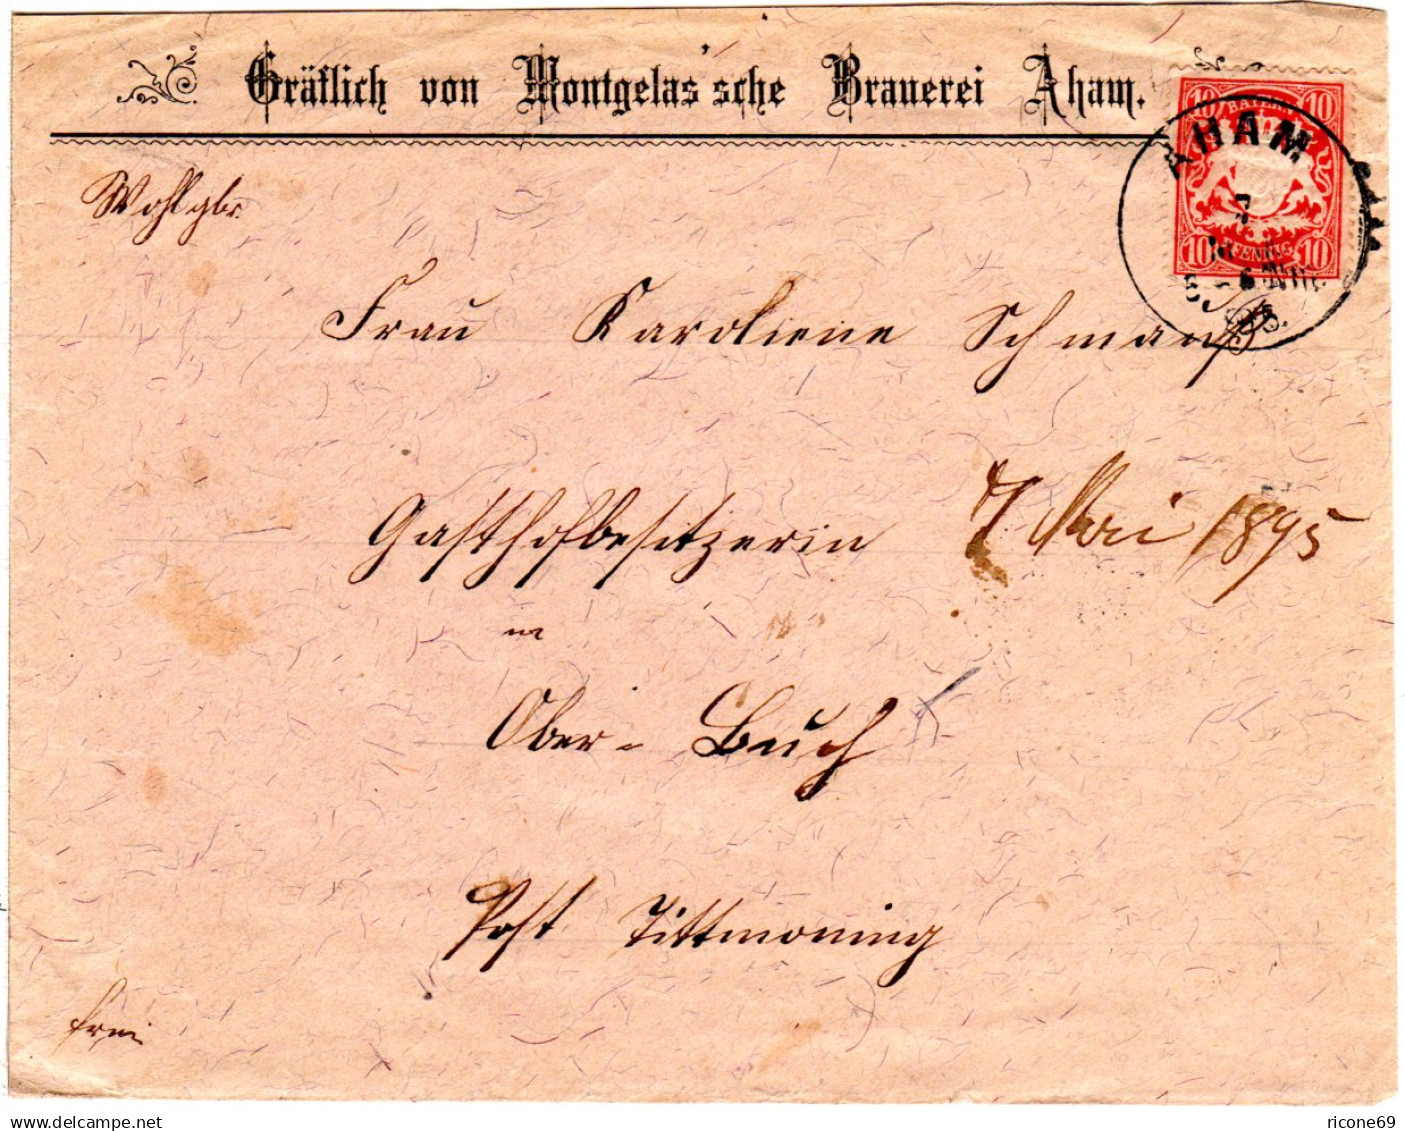 Gräflich von Montgelas'sche Brauerei Aham.
10 BAYERN 10
10 PFENNIG 10
AHAM
7
95.
Wohlgbr.
Frau Karoliene Schmauß
Gasthofbesitzerin 7 Mai 1895
in
Ober-Buch
Post Tittmoning
frei
ricone69